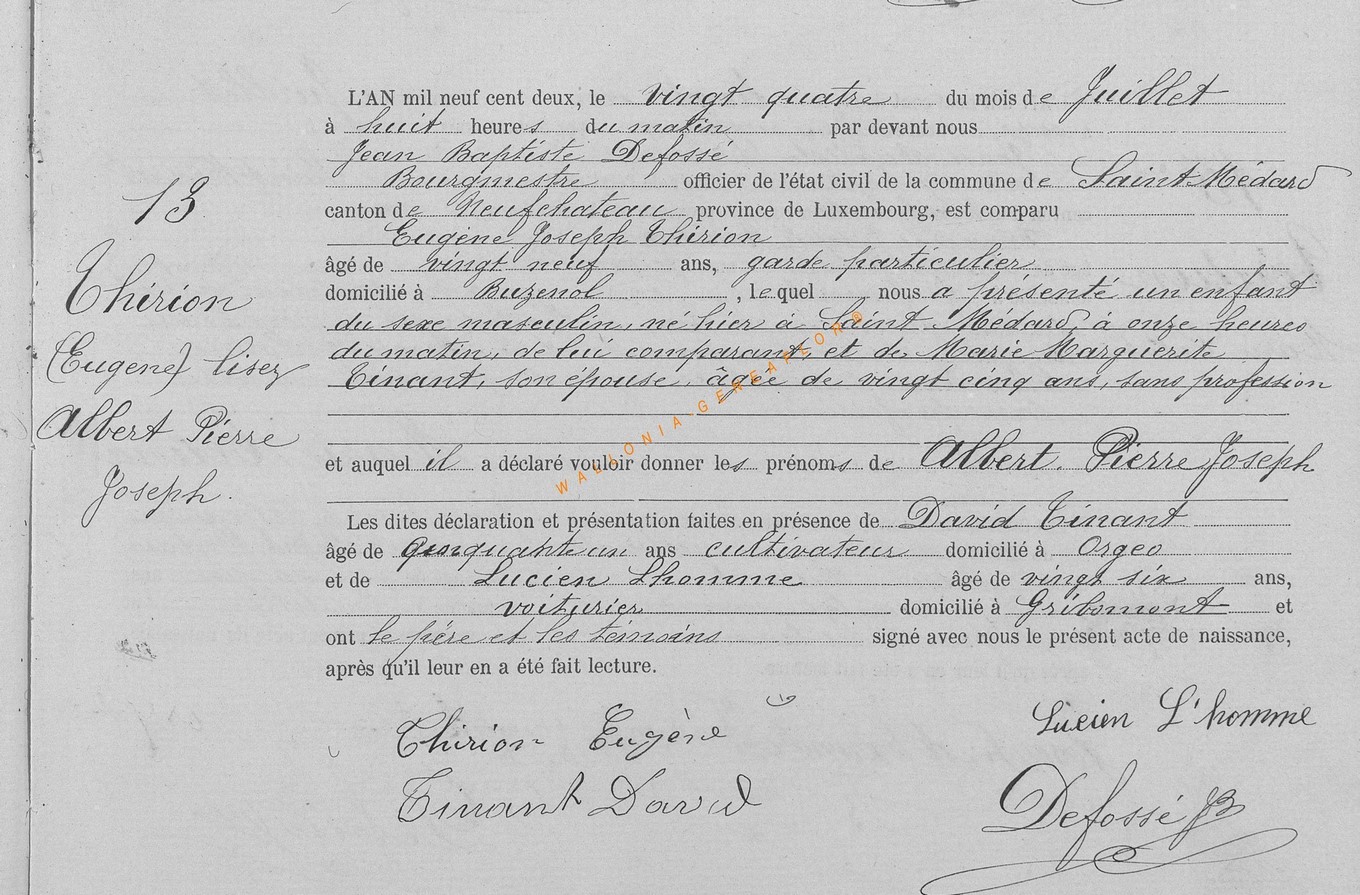 L'AN mil neuf cent deux, le vingt quatre du mois de Juillet
à huit heures du matin par devant nous
Jean Baptiste Defossé
Bourgmestre officier de l'état civil de la commune de Saint Médard
canton de Neufchateau province de Luxembourg, est comparu
Eugène Joseph Thirion
âgé de vingt neuf ans, garde particulier
domicilié à Buzenol, lequel nous a présenté un enfant
du sexe masculin, né hier à Saint Médard, à onze heures
du matin, de lui comparant, et de Marie Marguerite
Tinant, son épouse, âgée de vingt cinq ans, sans profession
et auquel il a déclaré vouloir donner les prénoms de Albert. Pierre Joseph
Les dites déclaration et présentation faites en présence de David Tinant
âgé de cinquante un ans cultivateur domicilié à Orgeo
et de Lucien Lhomme âgé de vingt six ans,
voiturier domicilié à Gribomont et
ont le père et les témoins signé avec nous le présent acte de naissance,
après qu'il leur en a été fait lecture.
13
Thirion
(Eugene) lisez
Albert Pierre
Joseph.
Thirion Eugène
Lucien L'homme
Tinant David
Defossé JB
WALLONIA-GENEAFLORD